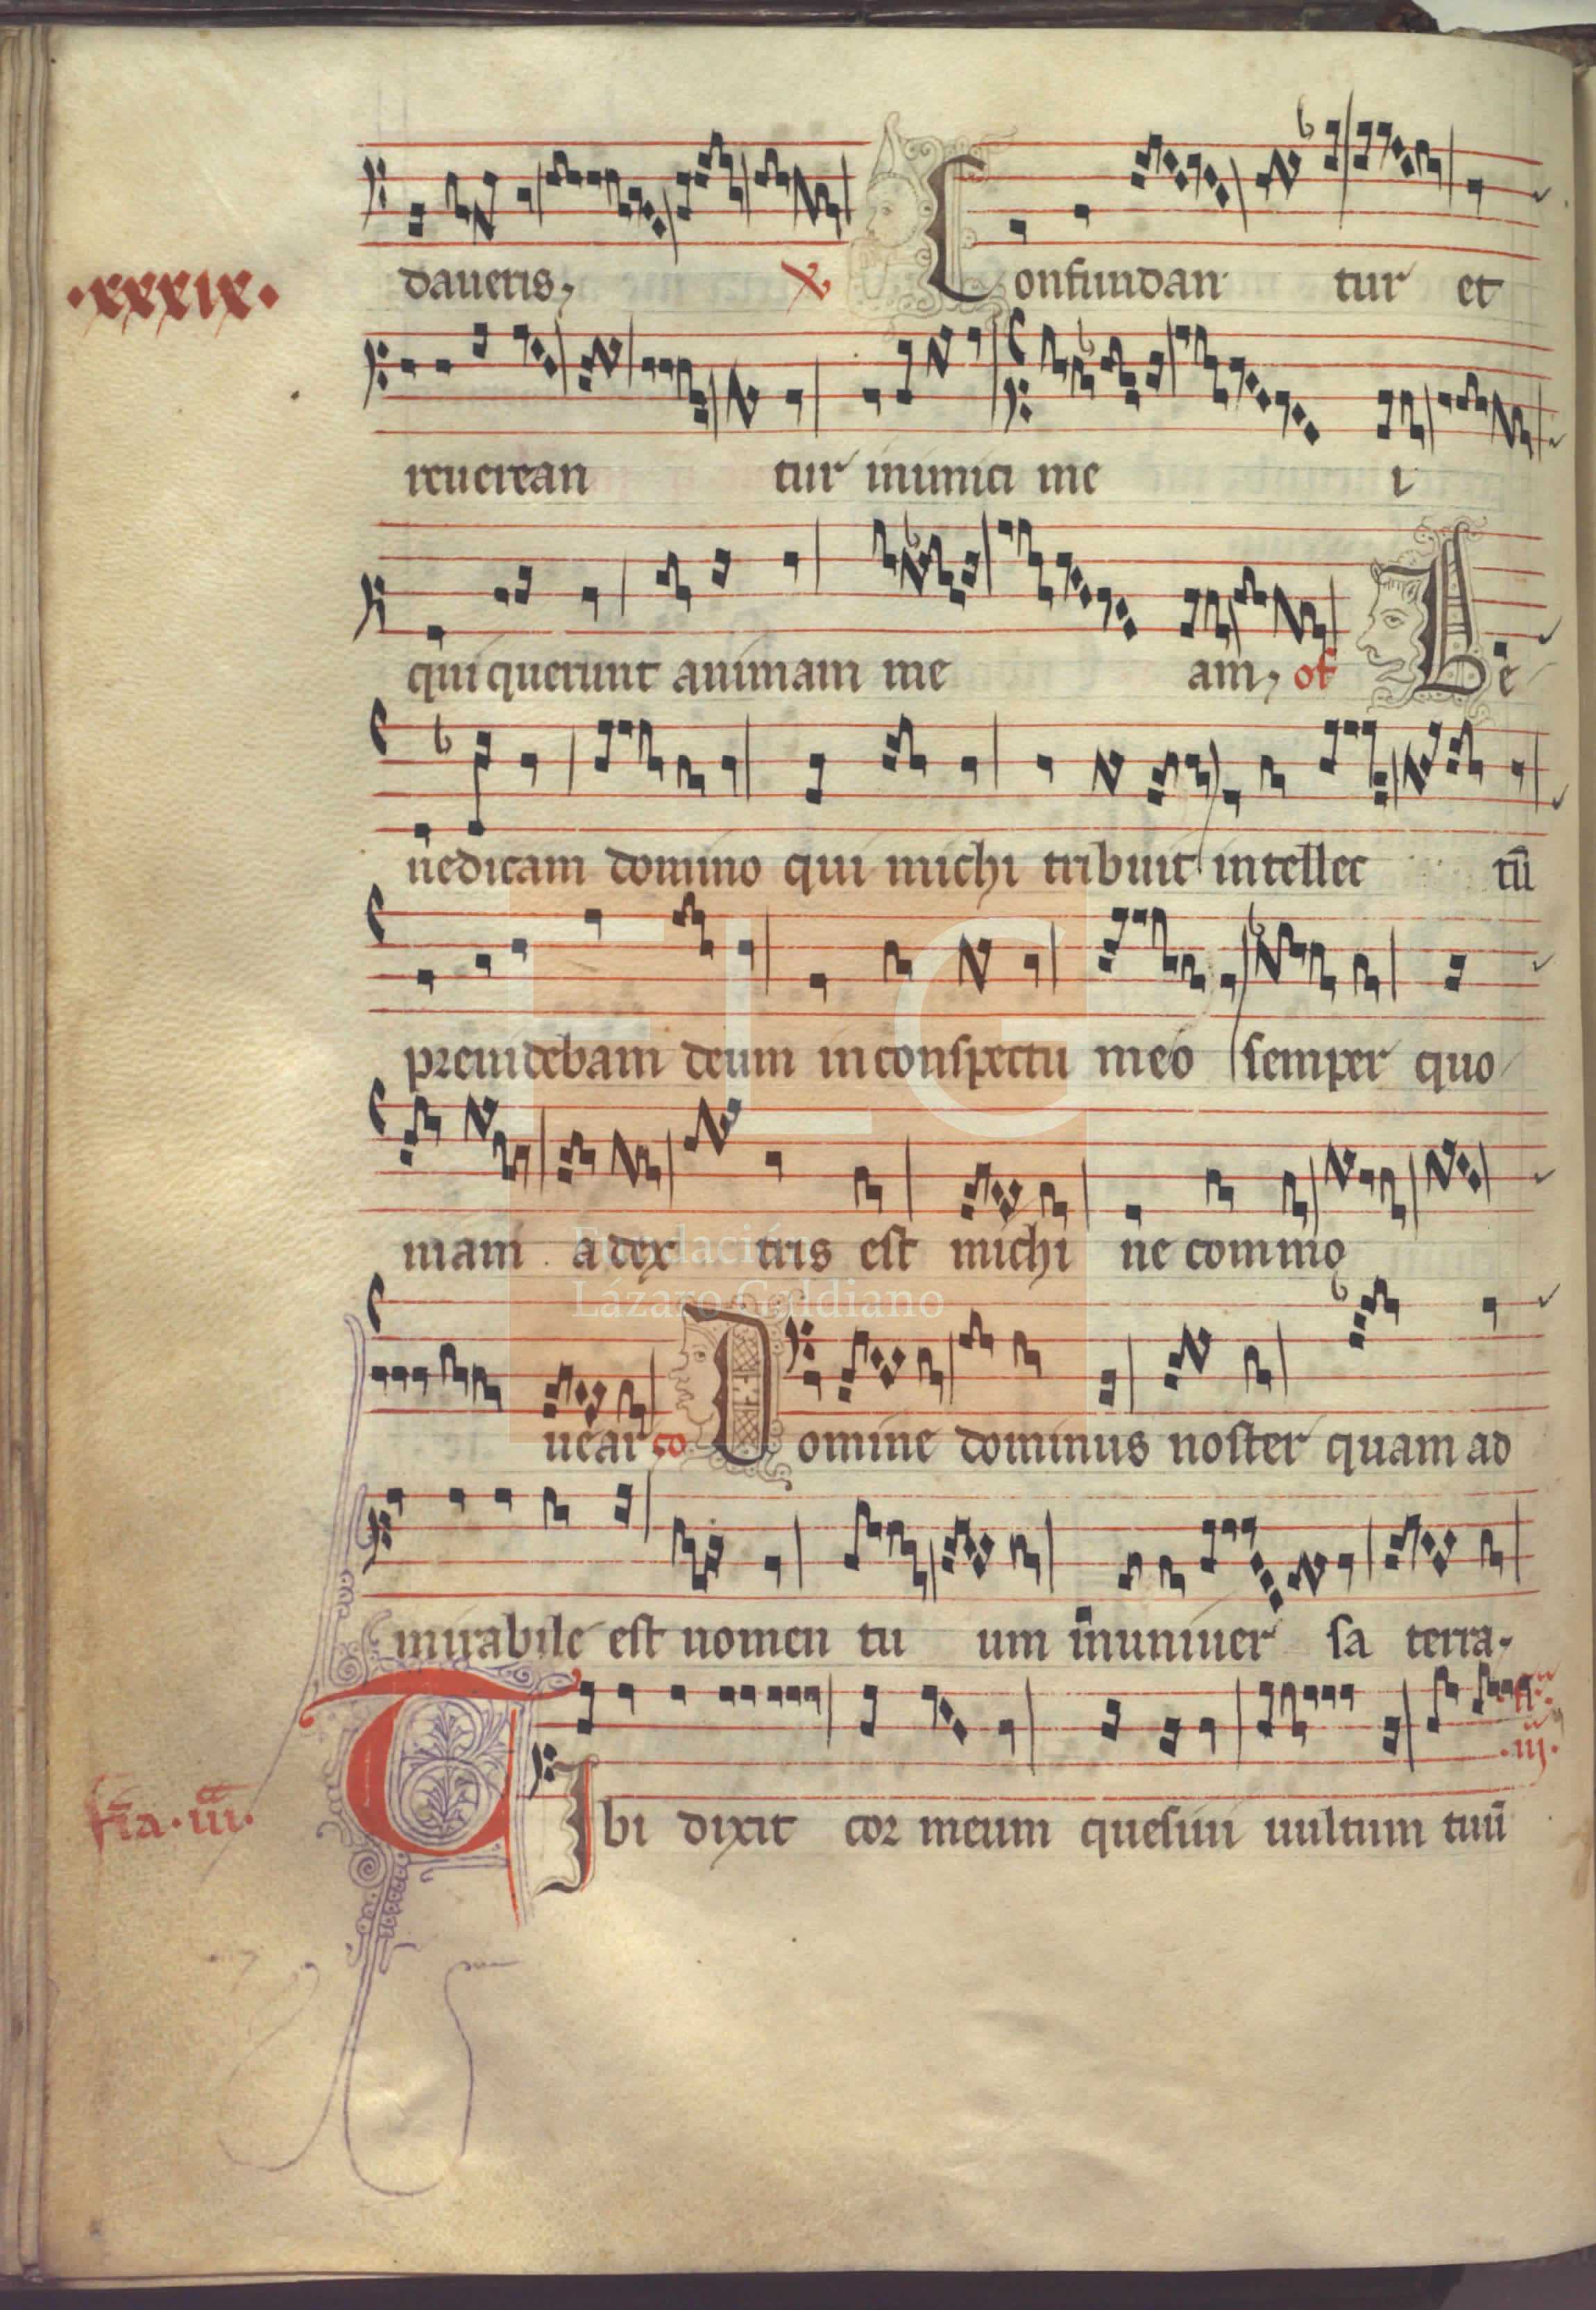 ·xxxix·
daueris, Confundan tur et
reuerean tur inimici me i
qui querunt animam me am, of Be
nedicam domino qui michi tribuit intellec tū
preuidebam deum in conspectu meo semper quo
niam a dex tris est michi ne commo
uear co Domine dominus noster quam ad
mirabile est nomen tu um in uniuer sa terra,
·iij·
fīa·iii·
Tibi dixit cor meum quesiui uultum tuū
FLG
Fundación
Lázaro Galdiano